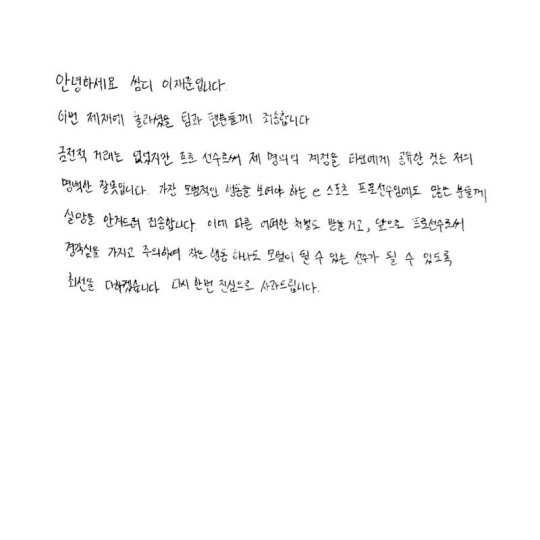 안녕하세요 쌈디 이재훈입니다.
이번 제재에 놀라셨을 팀과 팬분들께 죄송합니다
금전적 거래는 없었지만 프로 선수로써 제 명의의 계정을 타인에게 공유한 것은 저의
명백한 잘못입니다. 가장 모범적인 행동을 보여야 하는 e스포츠 프로선수임에도 많은 분들께
실망을 안겨드려 죄송합니다. 이에 따른 어떠한 처벌도 받을거고, 앞으로 프로선수로써
경각심을 가지고 주의하여 작은 행동 하나도 모범이 될 수 있는 선수가 될 수 있도록
최선을 다하겠습니다 다시 한번 진심으로 사과드립니다.